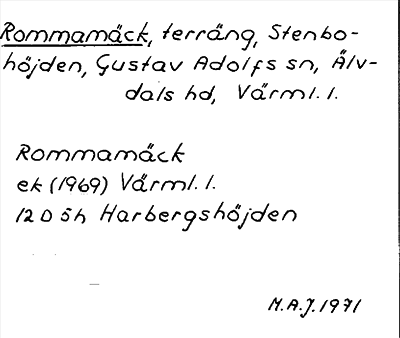 Rommamäck, terräng, Stenbo-
höjden, Gustav Adolfs sn, Älv-
dals hd, Värml. l.
Rommamäck
ek (1969) Värml. l.
12 D 5h Harbergshöjden
M.A.J. 1971